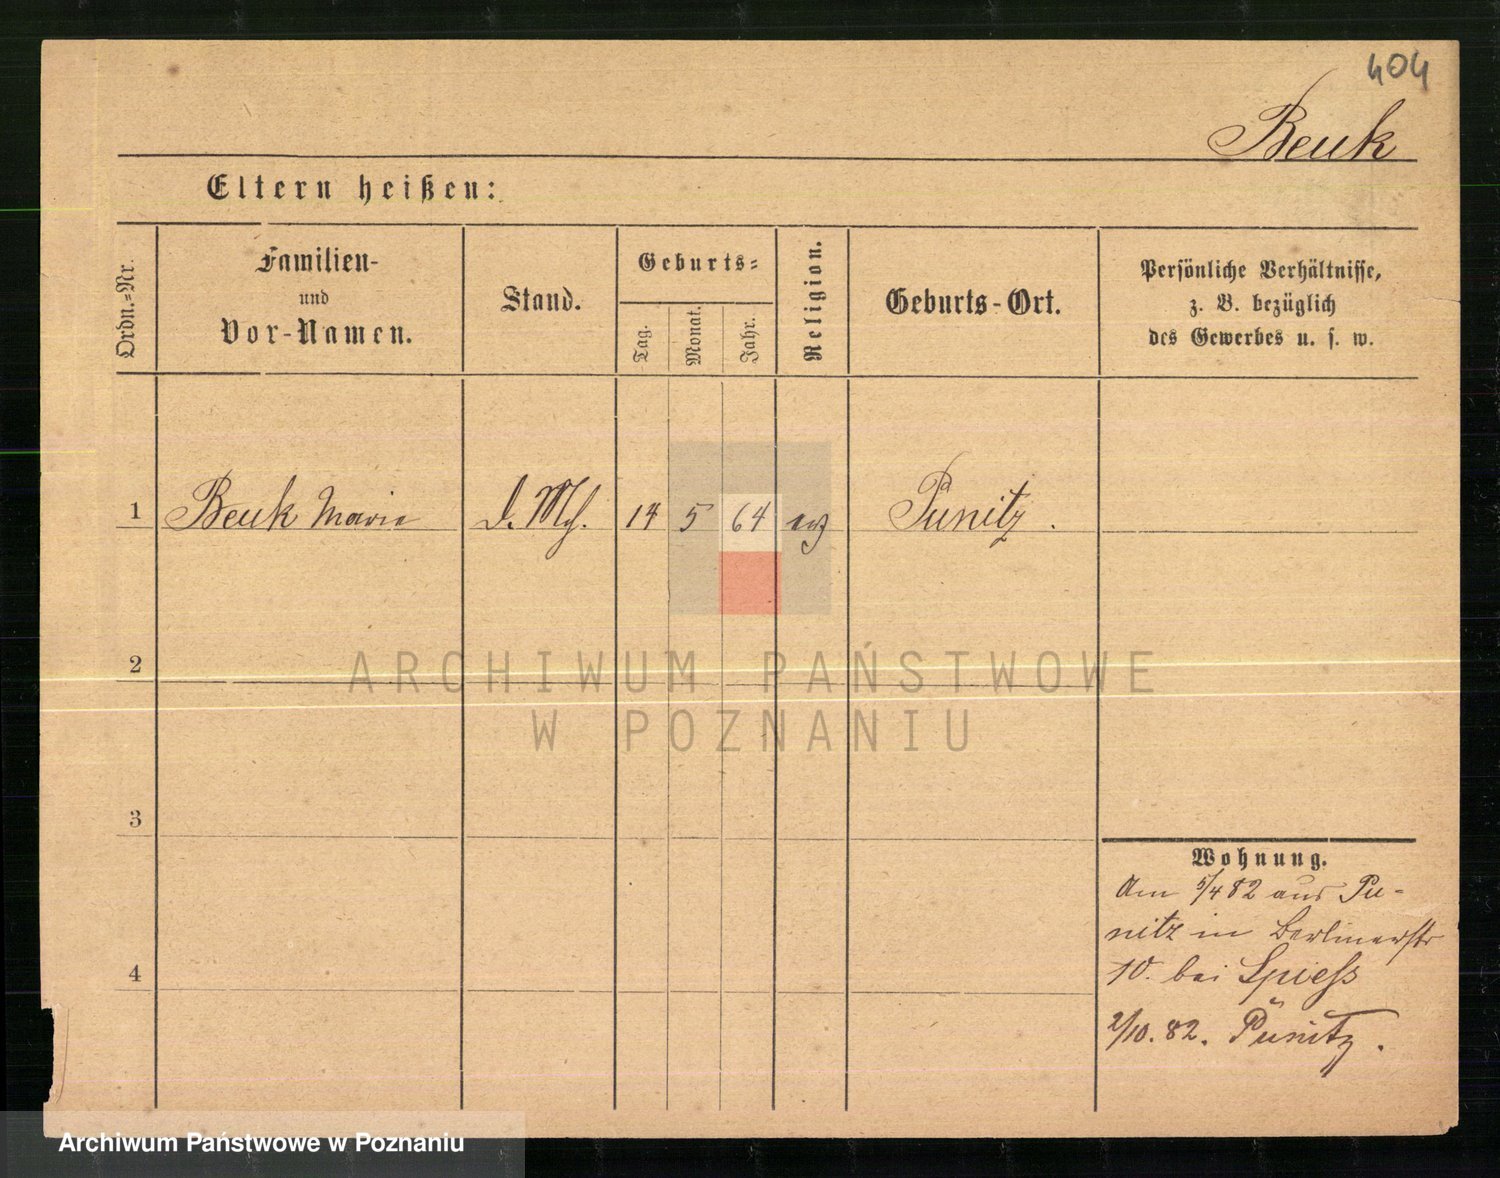 404
Beuk
Eltern heißen:
Ordn.-Nr.
Familien-
und
Vor-Namen.
Stand.
Geburts-
Tag.
Monat.
Jahr.
Religion.
Geburts-Ort.
Persönliche Verhältnisse,
z. B. bezüglich
des Gewerbes u. s. w.
1 Beuk Marie D. Mg. 14 5 64 Punitz.
2
ARCHIWUM PAŃSTWOWE
W POZNANIU
3
4
Wohnung.
Am 5/4 82 aus Pu-
nitz in Berlinerstr
10. bei Spiess
2/10. 82. Punitz.
Archiwum Państwowe w Poznaniu